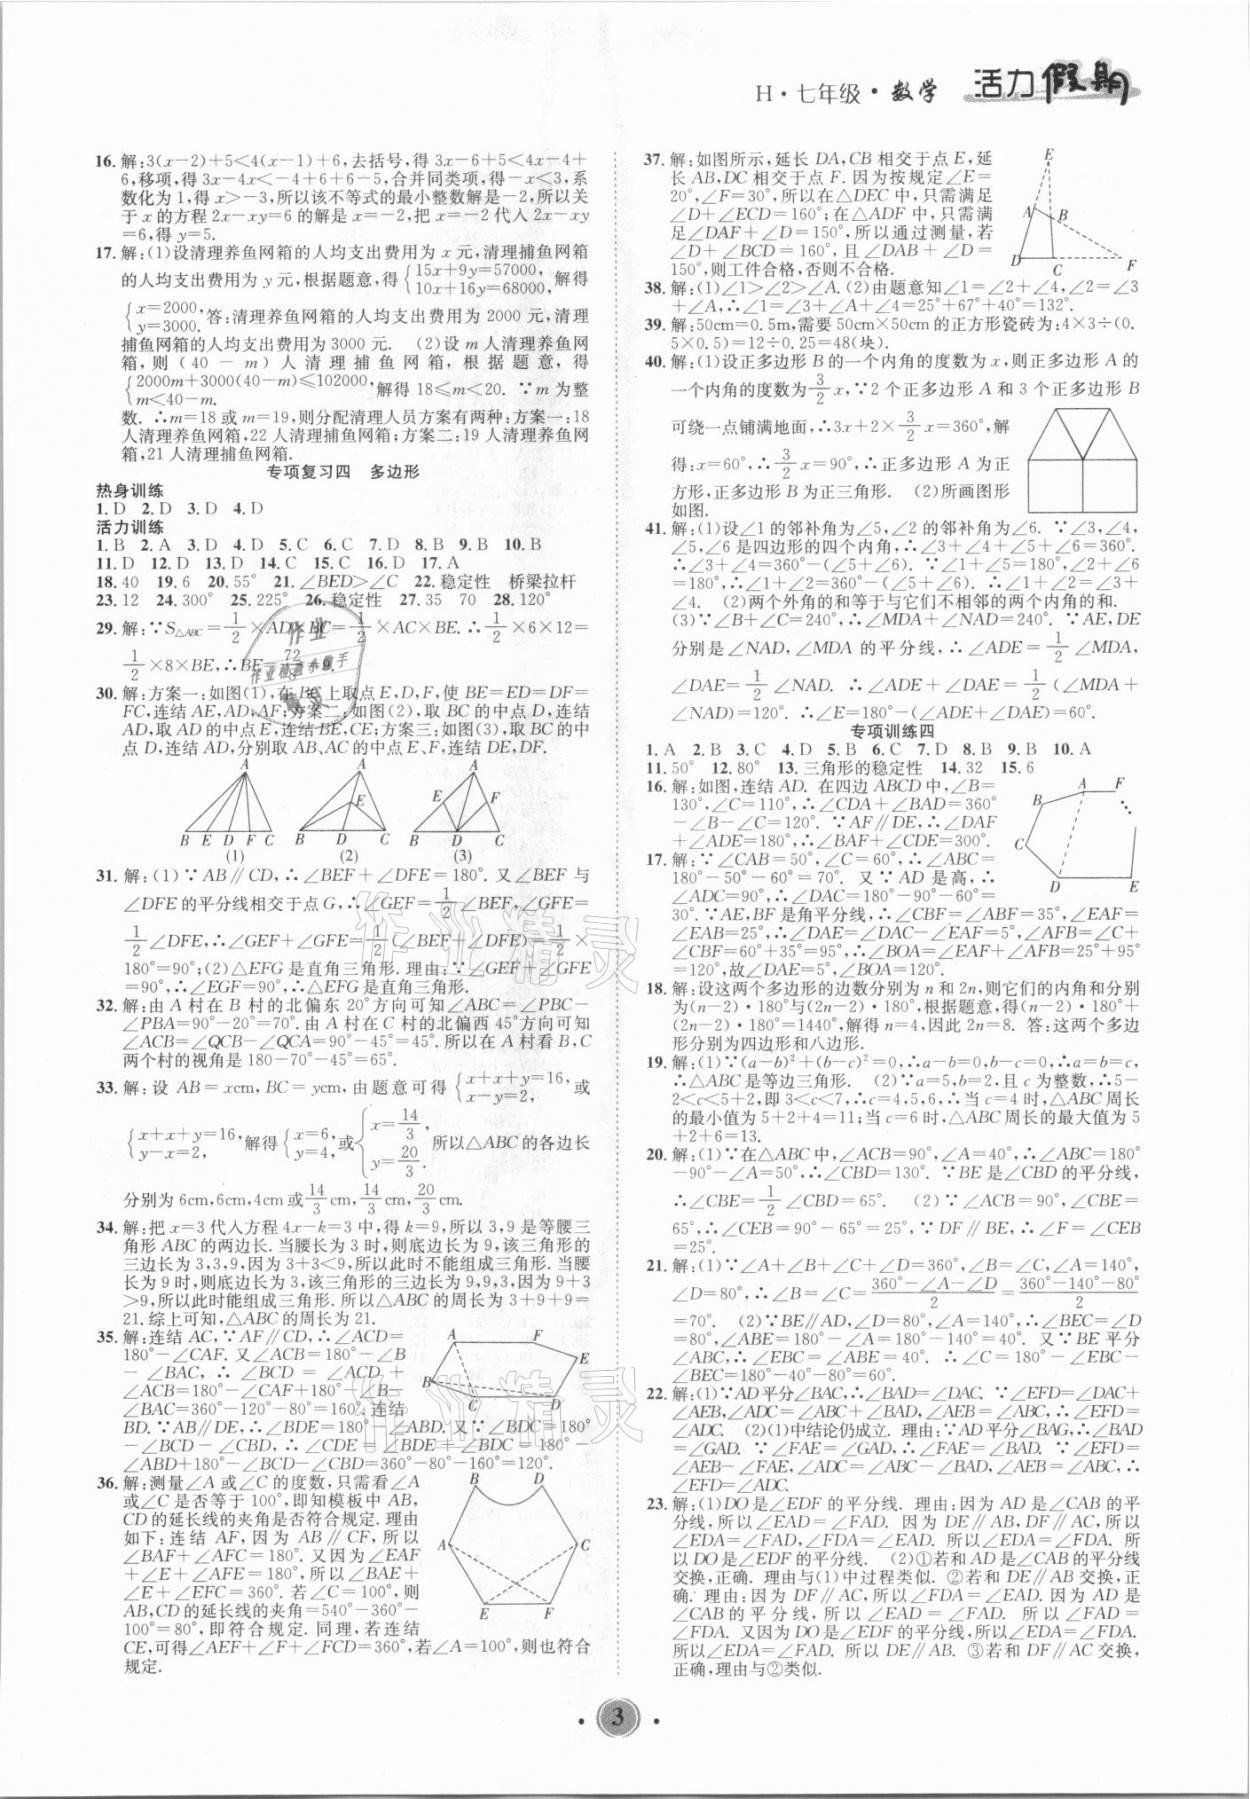 H·七年级·数学 活力假期
16. 解:3(x-2)+5<4(x-1)+6,去括号,得 3x-6+5<4x-4+
6,移项,得 3x-4x<-4+6+6-5,合并同类项,得-x<3,系
数化为1,得x>-3,所以该不等式的最小整数解是-2,所以关
于x的方程2x-xy=6的解是x=-2,把x=-2代入2x-xy
=6,得y=5.
17. 解:(1)设清理养鱼网箱的人均支出费用为x元,清理捕鱼网箱
的人均支出费用为y元,根据题意,得{15x+9y=57000, 10x+16y=68000, 解得
{x=2000, y=3000. 答:清理养鱼网箱的人均支出费用为2000元,清理
捕鱼网箱的人均支出费用为3000元. (2)设m人清理养鱼网
箱,则(40-m)人清理捕鱼网箱,根据题意,得
{2000m+3000(40-m)≤102000, m<40-m. 解得18≤m<20. ∵m为整
数. ∴m=18或m=19,则分配清理人员方案有两种:方案一:18
人清理养鱼网箱,22人清理捕鱼网箱;方案二:19人清理养鱼网
箱,21人清理捕鱼网箱.
专项复习四 多边形
热身训练
1. D 2. D 3. D 4. D
活力训练
1. B 2. A 3. D 4. D 5. C 6. C 7. D 8. B 9. B 10. B
11. D 12. D 13. D 14. C 15. C 16. D 17. A
18. 40 19. 6 20. 55° 21. ∠BED>∠C 22. 稳定性 桥梁拉杆
23. 12 24. 300° 25. 225° 26. 稳定性 27. 35 70 28. 120°
29. 解:∵S△ABC=1/2×AD×BC=1/2×AC×BE. ∴1/2×6×12=
1/2×8×BE,∴BE=72/8=9.
30. 解:方案一:如图(1),在BC上取点E,D,F,使BE=ED=DF=
FC,连结AE,AD,AF;方案二:如图(2),取BC的中点D,连结
AD,取AD的中点E,连结BE,CE;方案三:如图(3),取BC的中
点D,连结AD,分别取AB、AC的中点E、F,连结DE,DF.
A A A
E E F
B E D F C B D C B D C
(1) (2) (3)
31. 解:(1)∵AB∥CD,∴∠BEF+∠DFE=180°. 又∠BEF与
∠DFE的平分线相交于点G,∴∠GEF=1/2∠BEF,∠GFE=
1/2∠DFE,∴∠GEF+∠GFE=1/2(∠BEF+∠DFE)=1/2×
180°=90°;(2)△EFG是直角三角形. 理由:∵∠GEF+∠GFE
=90°,∴∠EGF=90°,∴△EFG是直角三角形.
32. 解:由A村在B村的北偏东20°方向可知∠ABC=∠PBC-
∠PBA=90°-20°=70°. 由A村在C村的北偏西45°方向可知
∠ACB=∠QCB-∠QCA=90°-45°=45°. 所以在A村看B,C
两个村的视角是180-70°-45°=65°.
33. 解:设AB=xcm,BC=ycm,由题意可得{x+x+y=16, x-y=2, 或
{x+x+y=16, y-x=2, 解得{x=6, y=4, 或{x=14/3, y=20/3. 所以△ABC的各边长
分别为6cm,6cm,4cm或14/3cm,14/3cm,20/3cm.
34. 解:把x=3代入方程4x-k=3中,得k=9,所以3,9是等腰三
角形ABC的两边长. 当腰长为3时,则底边长为9,该三角形的
三边长为3,3,9,因为3+3<9,所以此时不能组成三角形. 当腰
长为9时,则底边长为3,该三角形的三边长为9,9,3,因为9+3
>9,所以此时能组成三角形. 所以△ABC的周长为3+9+9=
21. 综上可知,△ABC的周长为21.
35. 解:连结AC,∵AF∥CD,∴∠ACD=
180°-∠CAF. 又∠ACB=180°-∠B
-∠BAC,∴∠BCD=∠ACD+
∠ACB=180°-∠CAF+180°-∠B-
∠BAC=360°-120°-80°=160°. 连结
BD. ∵AB∥DE,∴∠BDE=180°-∠ABD. 又∵∠BDC=180°
-∠BCD-∠CBD,∴∠CDE=∠BDE+∠BDC=180°-
∠ABD+180°-∠BCD-∠CBD=360°-80°-160°=120°.
A F E B C D
36. 解:测量∠A或∠C的度数,只需看∠A
或∠C是否等于100°,即知模板中AB,
CD的延长线的夹角是否符合规定. 理由
如下:连结AF,因为AB∥CF,所以
∠BAF+∠AFC=180°. 又因为∠EAF
+∠E+∠AFE=180°,所以∠BAE+
∠E+∠EFC=360°. 若∠C=100°,则
AB,CD的延长线的夹角=540°-360°-
100°=80°,即符合规定. 同理,若连结
CE,可得∠AEF+∠F+∠FCD=360°,若∠A=100°,则也符合
规定.
B D A C E F
37. 解:如图所示,延长DA,CB相交于点E,延
长AB,DC相交于点F. 因为按规定∠E=
20°,∠F=30°,所以在△DEC中,只需满足
∠D+∠ECD=160°;在△ADF中,只需满
足∠DAF+∠D=150°,所以通过测量,若
∠D+∠BCD=160°,且∠DAB+∠D=
150°,则工件合格,否则不合格.
E A B D C F
38. 解:(1)∠1>∠2>∠A. (2)由题意知∠1=∠2+∠4,∠2=∠3
+∠A,∴∠1=∠3+∠A+∠4=25°+67°+40°=132°.
39. 解:50cm=0.5m,需要50cm×50cm的正方形瓷砖为:4×3÷(0.
5×0.5)=12÷0.25=48(块).
40. 解:(1)设正多边形B的一个内角的度数为x,则正多边形A的
一个内角的度数为3/2x,∵2个正多边形A和3个正多边形B
可绕一点铺满地面,∴3x+2×3/2x=360°,解
得:x=60°,∴3/2x=90°,∴正多边形A为正
方形,正多边形B为正三角形. (2)所画图形
如图.
41. 解:(1)设∠1的邻补角为∠5,∠2的邻补角为∠6. ∵∠3,∠4,
∠5,∠6是四边形的四个内角,∴∠3+∠4+∠5+∠6=360°.
∴∠3+∠4=360°-(∠5+∠6). ∵∠1+∠5=180°,∠2+∠6
=180°,∴∠1+∠2=360°-(∠5+∠6). ∴∠1+∠2=∠3+
∠4. (2)两个外角的和等于与它们不相邻的两个内角的和.
(3)∵∠B+∠C=240°,∴∠MDA+∠NAD=240°. ∵AE,DE
分别是∠NAD,∠MDA的平分线,∴∠ADE=1/2∠MDA,
∠DAE=1/2∠NAD. ∴∠ADE+∠DAE=1/2(∠MDA+
∠NAD)=120°. ∴∠E=180°-(∠ADE+∠DAE)=60°.
专项训练四
1. A 2. B 3. C 4. D 5. B 6. C 7. D 8. B 9. B 10. A
11. 50° 12. 80° 13. 三角形的稳定性 14. 32 15. 6
16. 解:如图,连结AD. 在四边ABCD中,∠B=
130°,∠C=110°,∴∠CDA+∠BAD=360°
-∠B-∠C=120°. ∵AF∥DE,∴∠DAF
+∠ADE=180°,∴∠BAF+∠CDE=300°.
A F B C D E
17. 解:∵∠CAB=50°,∠C=60°,∴∠ABC=
180°-50°-60°=70°. 又∵AD是高,∴
∠ADC=90°,∴∠DAC=180°-90°-60°=
30°. ∵AE,BF是角平分线,∴∠CBF=∠ABF=35°,∠EAF=
∠EAB=25°,∴∠DAE=∠DAC-∠EAF=5°,∠AFB=∠C+
∠CBF=60°+35°=95°,∴∠BOA=∠EAF+∠AFB=25°+95°
=120°,故∠DAE=5°,∠BOA=120°.
18. 解:设这两个多边形的边数分别为n和2n,则它们的内角和分别
为(n-2)·180°与(2n-2)·180°,根据题意,得(n-2)·180°+
(2n-2)·180°=1440°,解得n=4,因此2n=8. 答:这两个多边
形分别为四边形和八边形.
19. 解:(1)∵(a-b)²+(b-c)²=0,∴a-b=0,b-c=0,∴a=b=c,
∴△ABC是等边三角形. (2)∵a=5,b=2,且c为整数,∴5-
2<c<5+2,即3<c<7,∴c=4,5,6,∴当c=4时,△ABC周长
的最小值为5+2+4=11;当c=6时,△ABC周长的最大值为5
+2+6=13.
20. 解:(1)∵在△ABC中,∠ACB=90°,∠A=40°,∴∠ABC=
90°-∠A=50°,∴∠CBD=130°. ∵BE是∠CBD的平分线,
∴∠CBE=1/2∠CBD=65°. (2)∵∠ACB=90°,∠CBE=
65°,∴∠CEB=90°-65°=25°. ∵DF∥BE,∴∠F=∠CEB
=25°.
21. 解:(1)∵∠A+∠B+∠C+∠D=360°,∠B=∠C,∠A=140°,
∠D=80°,∴∠B=∠C=(360°-∠A-∠D)/2=(360°-140°-80°)/2
=70°. (2)∵BE∥AD,∠D=80°,∠A=140°,∴∠BEC=∠D
=80°,∠ABE=180°-∠A=180°-140°=40°. 又∵BE平分
∠ABC,∴∠EBC=∠ABE=40°. ∴∠C=180°-∠EBC-
∠BEC=180°-40°-80°=60°.
22. 解:(1)∵AD平分∠BAC,∴∠BAD=∠DAC. ∵∠EFD=∠DAC+
∠AEB,∠ADC=∠ABC+∠BAD,∠AEB=∠ABC,∴∠EFD=
∠ADC. (2)(1)中结论仍成立. 理由:∵AD平分∠BAG,∴∠BAD
=∠GAD. ∵∠FAE=∠GAD,∴∠FAE=∠BAD. ∵∠EFD=
∠AEB-∠FAE,∠ADC=∠ABC-∠BAD,∠AEB=∠ABC,∴
∠EFD=∠ADC.
23. 解:(1)DO是∠EDF的平分线. 理由:因为AD是∠CAB的平
分线,所以∠EAD=∠FAD. 因为DE∥AB,DF∥AC,所以
∠EDA=∠FAD,∠FDA=∠EAD. 所以∠EDA=∠FDA. 所
以DO是∠EDF的平分线. (2)①若和AD是∠CAB的平分线
交换,正确. 理由与(1)中过程类似. ②若和DE∥AB交换,正
确. 理由:因为DF∥AC,所以∠FDA=∠EAD. 因为AD是
∠CAB的平分线,所以∠EAD=∠FAD. 所以∠FAD=
∠FDA. 又因为DO是∠EDF的平分线,所以∠EDA=∠FDA.
所以∠EDA=∠FAD. 所以DE∥AB. ③若和DF∥AC交换,
正确,理由与②类似.
3